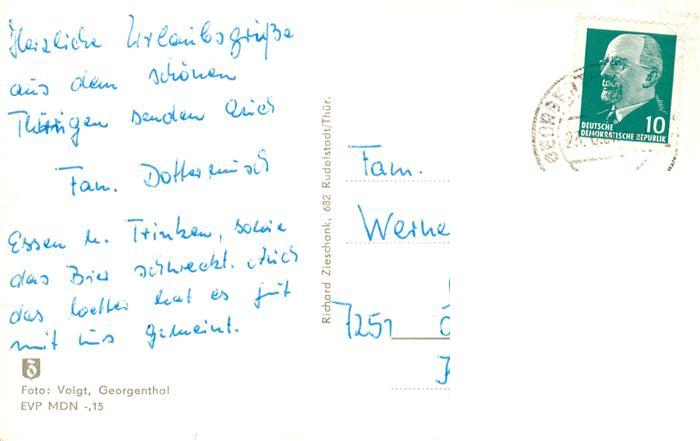 Herzliche Urlaubsgrüße
aus dem schönen
Thürigen senden Euch
Fam.
Essen u. Trinken, sowie
das Bier schmeckt. Auch
das Wetter hat es gut
mit uns gemeint.
Foto: Voigt, Georgenthal
EVP MDN -,15
Richard Zieschank, 682 Rudolstadt/Thür.
10
DEUTSCHE
DEMOKRATISCHE REPUBLIK
Fam.
Werne
7251